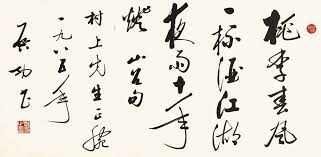 桃李春風
一杯酒江湖
夜雨十年
燈 山谷句
村上先生正腕
一九八五年
启功